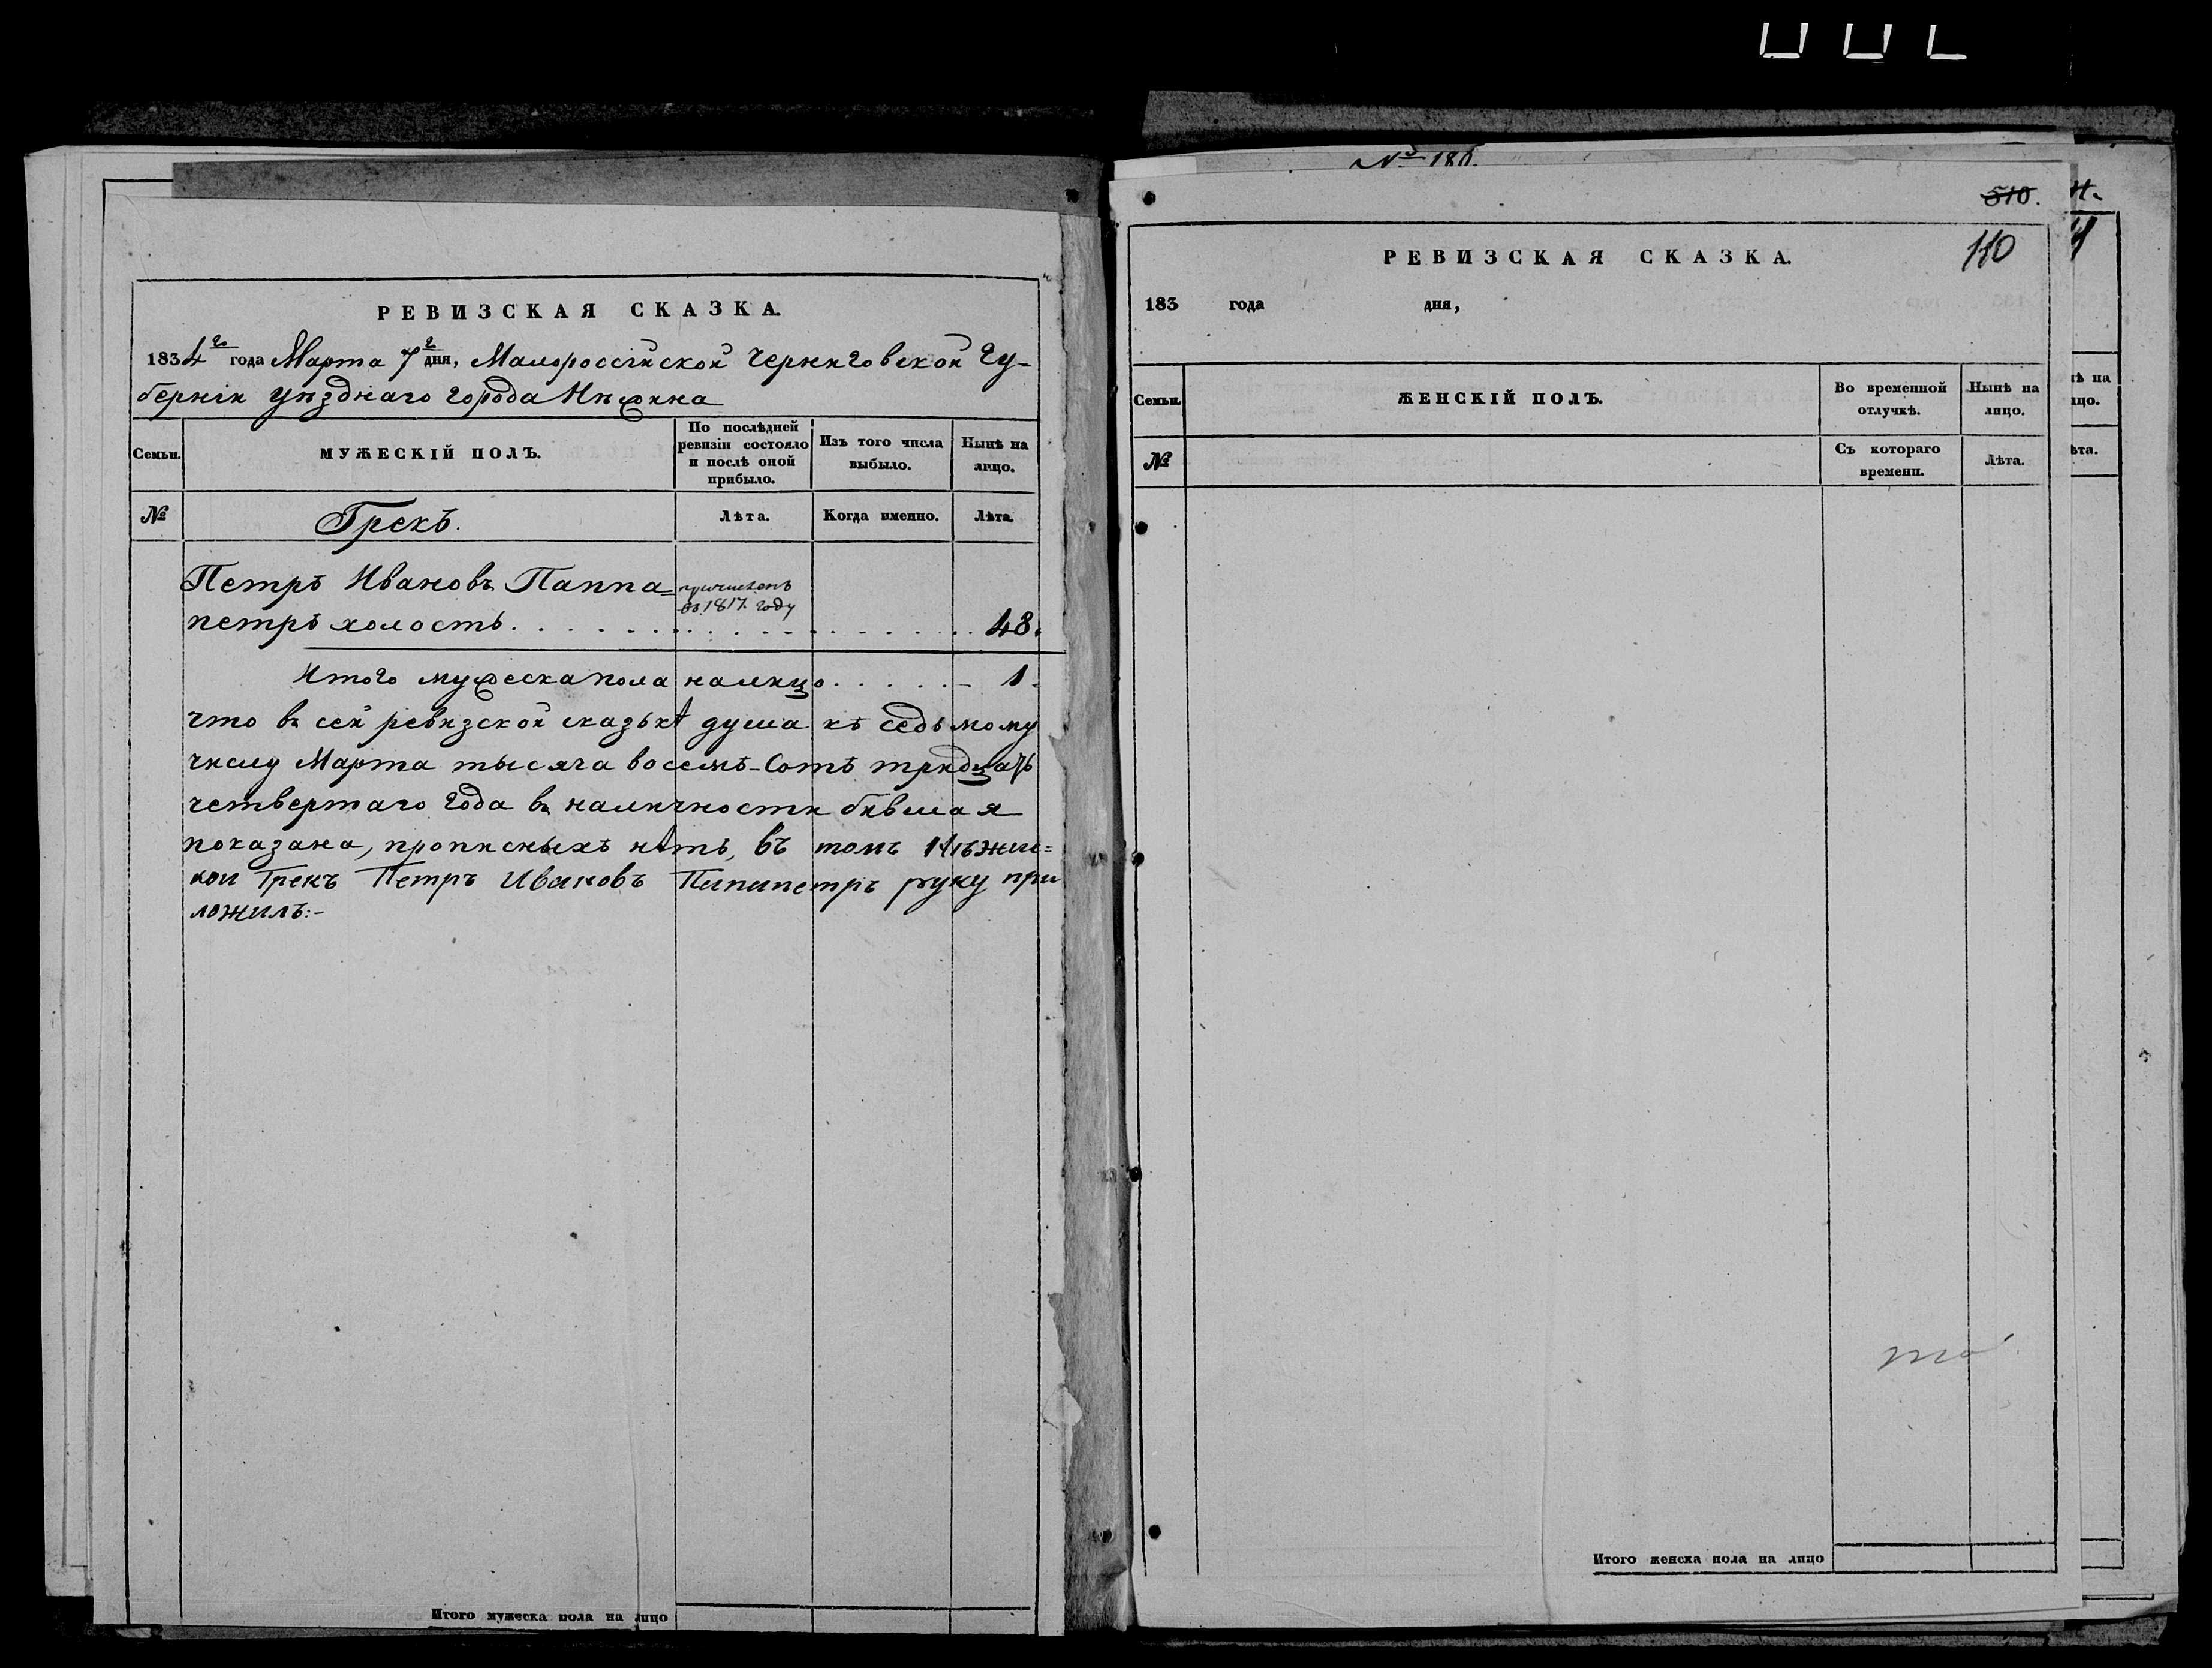 РЕВИЗСКАЯ СКАЗКА.
1834го года Марта 7г дня, Малороссійской Черниговской Гу-
берніи уѣзднаго города Нѣжина
Семьи.
МУЖЕСКІЙ ПОЛЪ.
По послѣдней
ревизіи состояло
и послѣ оной
прибыло.
Изъ того числа
выбыло.
Нынѣ на
лицо.
№
Грекъ.
Лѣта.
Когда именно.
Лѣта.
Петръ Ивановъ Паппа=
петръ холостъ. 48.
причисленъ
въ 1817. году
Итого мужеска пола налицо. 1.
что въ сей ревизской сказкѣ душа къ седьмому
числу Марта тысяча восемъ-Сотъ тридцать
четвертаго года въ наличности бывшая
показана, прописныхъ нѣтъ, въ томъ Нѣжинс=
кои Грекъ Петръ Ивановъ Папапетръ руку при
ложилъ:-
Итого мужеска пола на лицо
№ 180.
510.
110
РЕВИЗСКАЯ СКАЗКА.
183 года дня,
Семьи.
ЖЕНСКІЙ ПОЛЪ.
Во временной
отлучкѣ.
Нынѣ на
лицо.
№
Съ котораго
времени.
Лѣта.
Итого женска пола на лицо